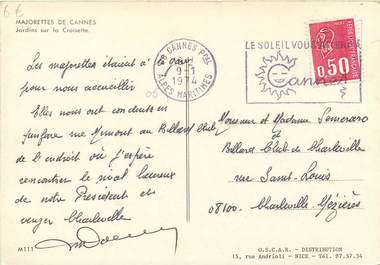 6€
MAJORETTES DE CANNES
Jardins sur la Croisette.
06 CANNES PPAL
9-1
1974
ALPES MARITIMES
LE SOLEIL VOUS ATTEND
Cannes
0,50
Les majorettes étaient à la gare
pour nous accueillir
Elles nous ont conduits en
fanfare rue Mimont au Billard Club
de l'endroit où j'espère
rencontrer le rival heureux
de notre Président et
venger Charleville
M111
Monsieur et Madame Semeraro
Billard Club de Charleville
rue Saint-Louis
08100 - Charleville Mézières
O.S.C.A.R. - DISTRIBUTION
15, rue Andrioli - NICE - Tél. 87.37.34